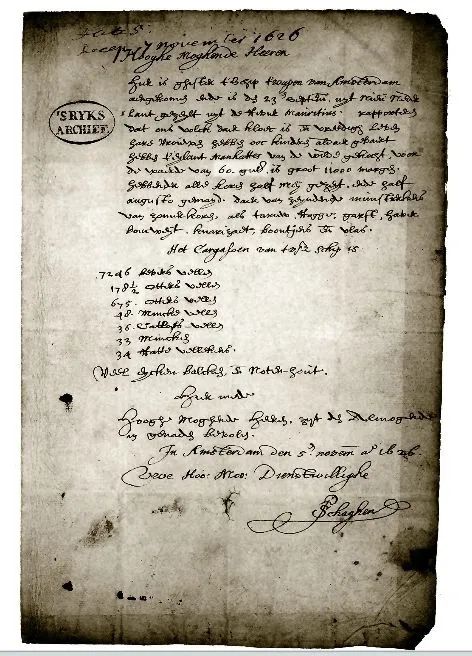 7 november 1626
Hooghe Moghende Heeren
'S RYKS
ARCHIEF
Hier is ghister t schip t wapen van Amsterdam
aengekomen ende is den 23 septem. uyt Nieu Nederlant
gezeylt uyt de rivier Mauritius. rapporteren
dat ons volck daer kloec is en vredigh leven
hare vrouwen hebben oock kinderen aldaer gebaert
hebben t eylant Manhattes van de wilde gekocht voor
de waerde van 60 guld. is groot 11000 morgen.
hebbende alle koren half mey gezeyt, ende half
augusto gemayd. daer van zeynden munsterkens
van zomerkoren, als tarwe, rogge, garst, haver
boucweyt, knarizaet, boontjens en vlas.
Het Cargasoen van t schip is
7246 bevers vellen
178½ otters vellen
675 otters vellen
48 mincke vellen
36 Catloes vellen
33 mincken
34 Ratte vellekens.
Veel eycken balcken, en Noten-hout.
Hier mede
Hooghe Moghende Heeren, zyt den Almogende
in genade bevolen.
In Amsterdam den 5en novem. aº 1626.
Uwe Hoo: Moo: Dienstwillighe
P Schaghen